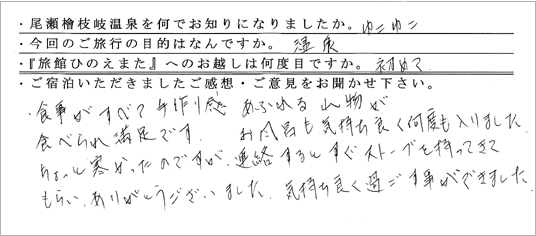 ・尾瀬檜枝岐温泉を何でお知りになりましたか。ゆこゆこ
・今回のご旅行の目的はなんですか。 温泉
・『旅館ひのえまた』へのお越しは何度目ですか。初めて
・ご宿泊いただきましたご感想・ご意見をお聞かせ下さい。
・食事がすべて手作り感あふれる山物が
食べられ満足です。 お風呂も気持ち良く何度も入りました。
ちょっと寒かったのですが、連絡するとすぐストーブを持ってきて
もらい、ありがとうございました。気持ち良く過ごす事ができました。